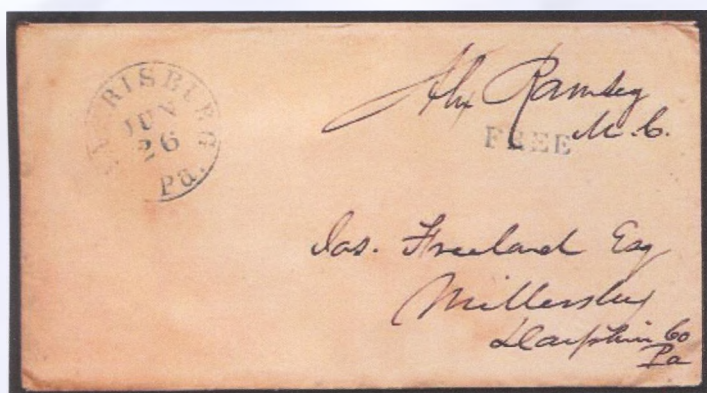 HARRISBURG
JUN
26
Pa.
Alex Ramsey
M. C.
FREE
Jas. Freeland Esq
Millersburg
Dauphin Co
Pa